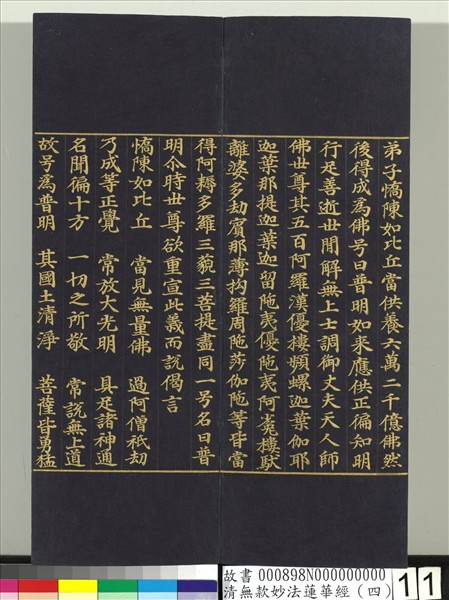 弟子憍陳如比丘當供養六萬二千億佛然
後得成為佛号曰普明如來應供正徧知明
行足善逝世間解無上士調御丈夫天人師
佛世尊其五百阿羅漢優樓頻螺迦葉伽耶
迦葉那提迦葉迦留陁夷優陁夷阿㝹樓馱
離婆多劫賓那薄拘羅周陁莎伽陁等皆當
得阿耨多羅三藐三菩提盡同一号名曰普
明尒時世尊欲重宣此義而說偈言
憍陳如比丘 當見無量佛 過阿僧祇劫
乃成等正覺 常放大光明 具足諸神通
名聞徧十方 一切之所敬 常說無上道
故号為普明 其國土清淨 菩薩皆勇猛
故書 000898N000000000
清無款妙法蓮華經(四) 11